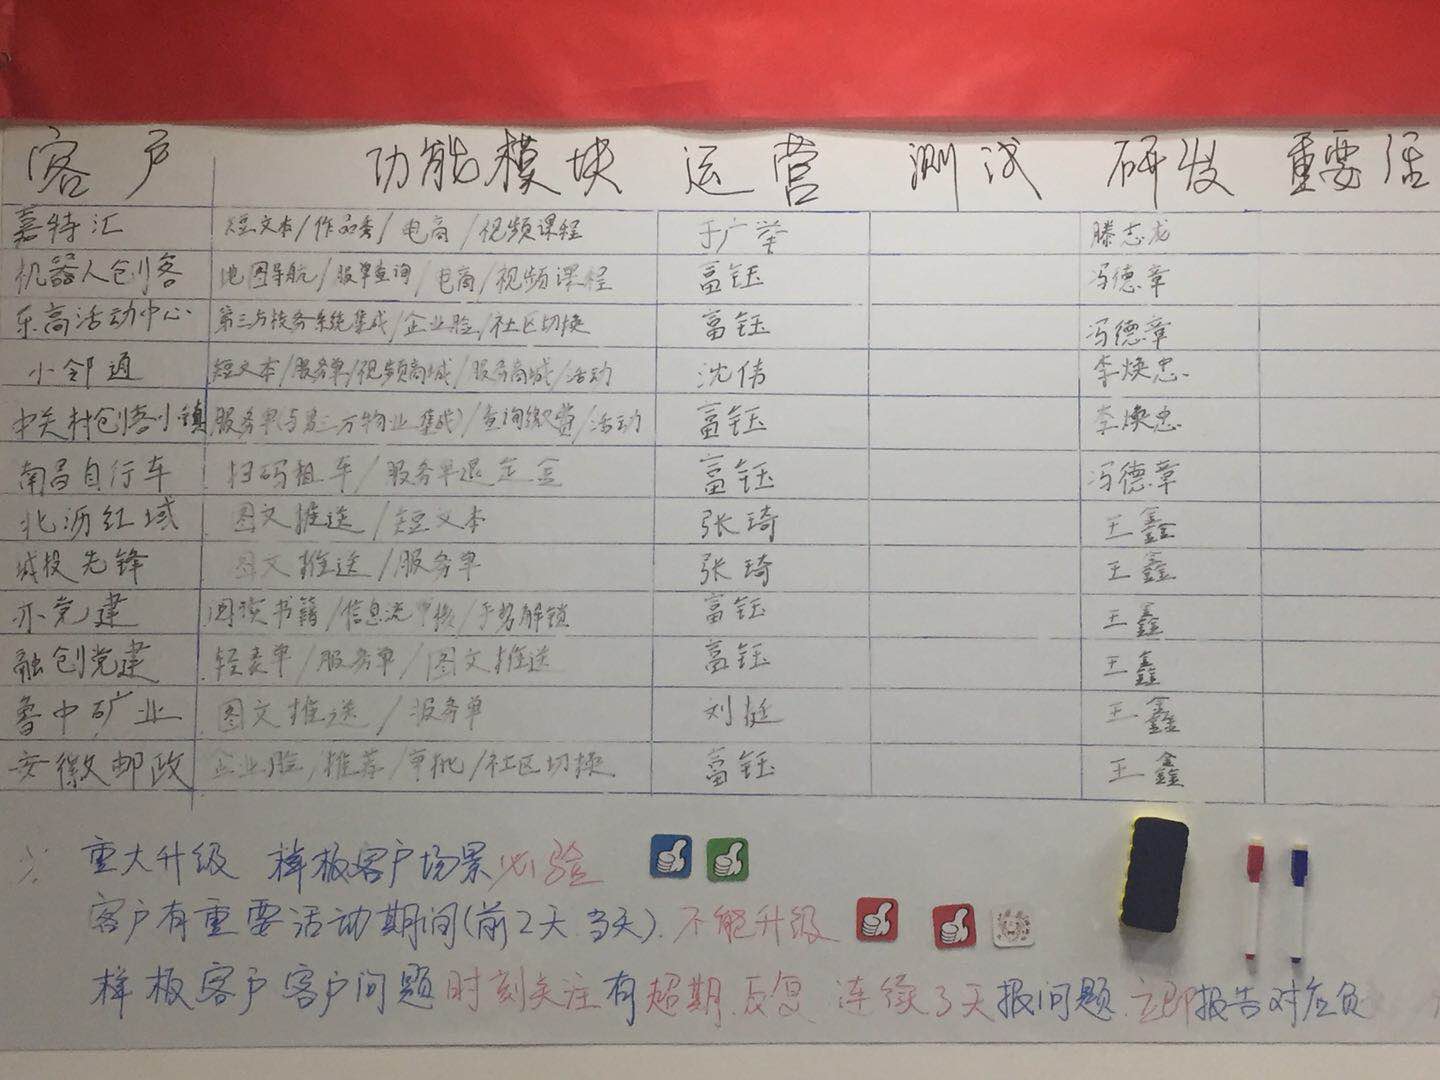 客户 功能模块 运营 测试 研发 重要活
嘉特汇 短文本/作品秀/电商/视频课程 于广举 滕志龙
机器人创客 地图导航/服单查询/电商/视频课程 富钰 冯德章
乐高活动中心 第三方技务系统集成/企业脸/社区切换 富钰 冯德章
小邻通 短文本/服务单/视频商城/服务商城/活动 沈伟 李焕忠
中关村创客小镇 服务单(与第三方物业集成)/查询缴费/活动 富钰 李焕忠
南昌自行车 扫码租车/服务单退定金 富钰 冯德章
北沥红域 图文推送/短文本 张琦 王鑫
城投先锋 图文推送/服务单 张琦 王鑫
亦党建 阅读书籍/信息流审核/手势解锁 富钰 王鑫
融创党建 轻表单/服务单/图文推送 富钰 王鑫
鲁中矿业 图文推送/服务单 刘挺 王鑫
安徽邮政 企业脸/推荐/审批/社区切换 富钰 王鑫
重大升级 样板客户场景必验
客户有重要活动期间(前2天.当天).不能升级
样板客户客户问题时刻关注有超期.反复.连续3天报问题.立即报告对应负